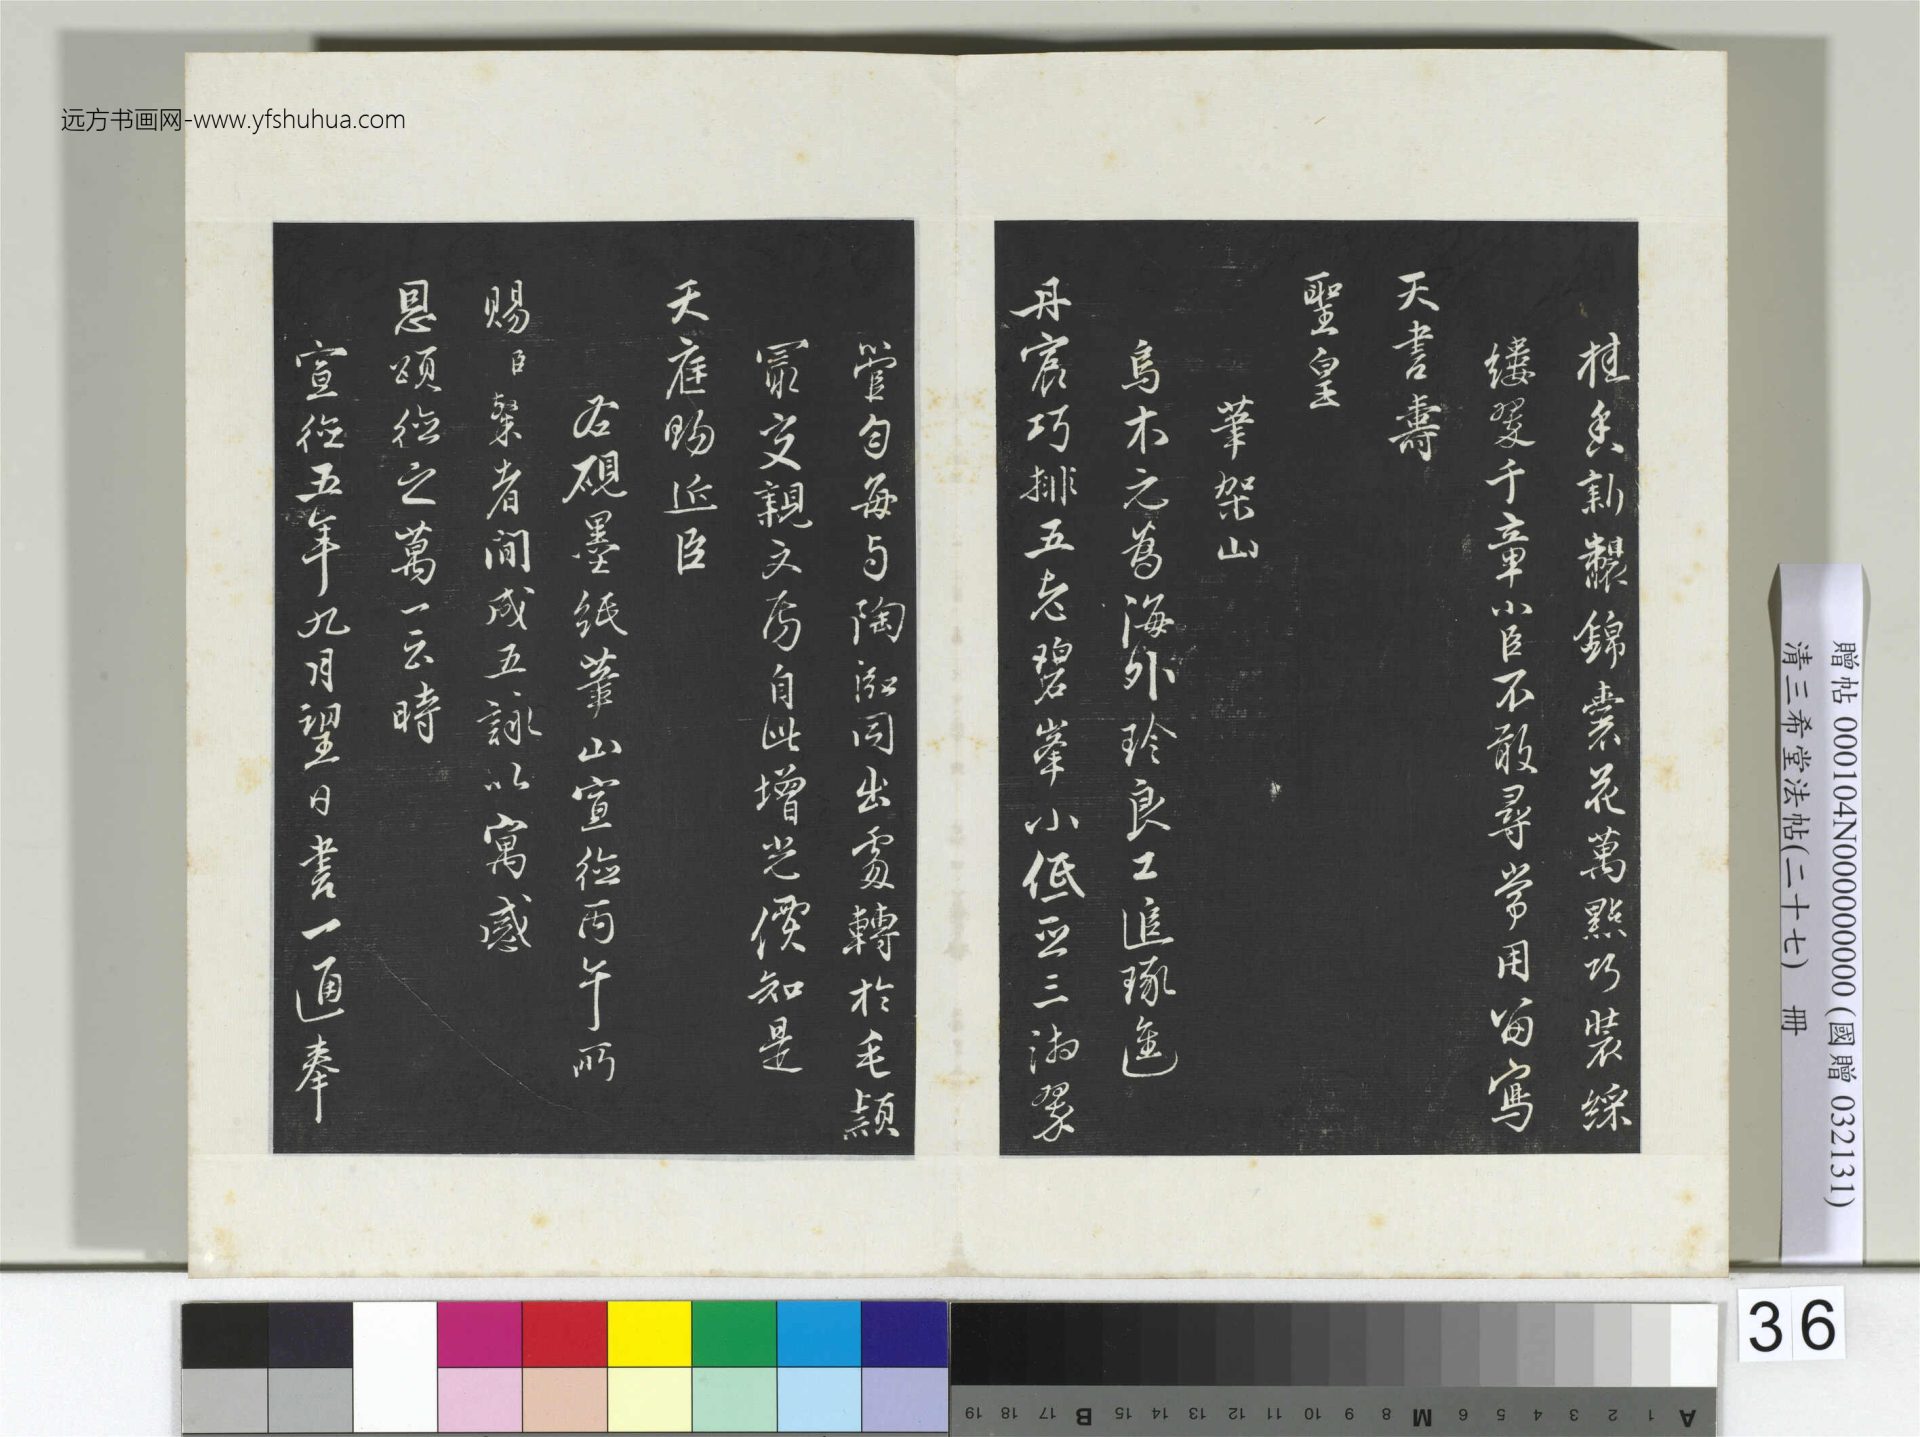 远方书画网-www.yfshuhua.com
桂香新製錦囊花萬點巧裝綵
縷翠千章小臣不敢尋常用留寫
天書壽
聖皇
筆架山
烏木元為海外珍良工追琢進
丹宸巧排五老碧峯小低亞三湘翠
管勻每與陶泓同出處轉於毛穎
最交親文房自此增光價知是
天庭賜近臣
右硯墨紙筆山宣德丙午所
賜臣榮者閒成五詠以寓感
恩頌德之萬一云時
宣德五年九月望日書一通奉
贈帖 000104N000000000 (國贈 032131)
清三希堂法帖(二十七) 冊
36
A 1 2 3 4 5 6 M 8 9 10 11 12 13 14 15 B 17 18 19